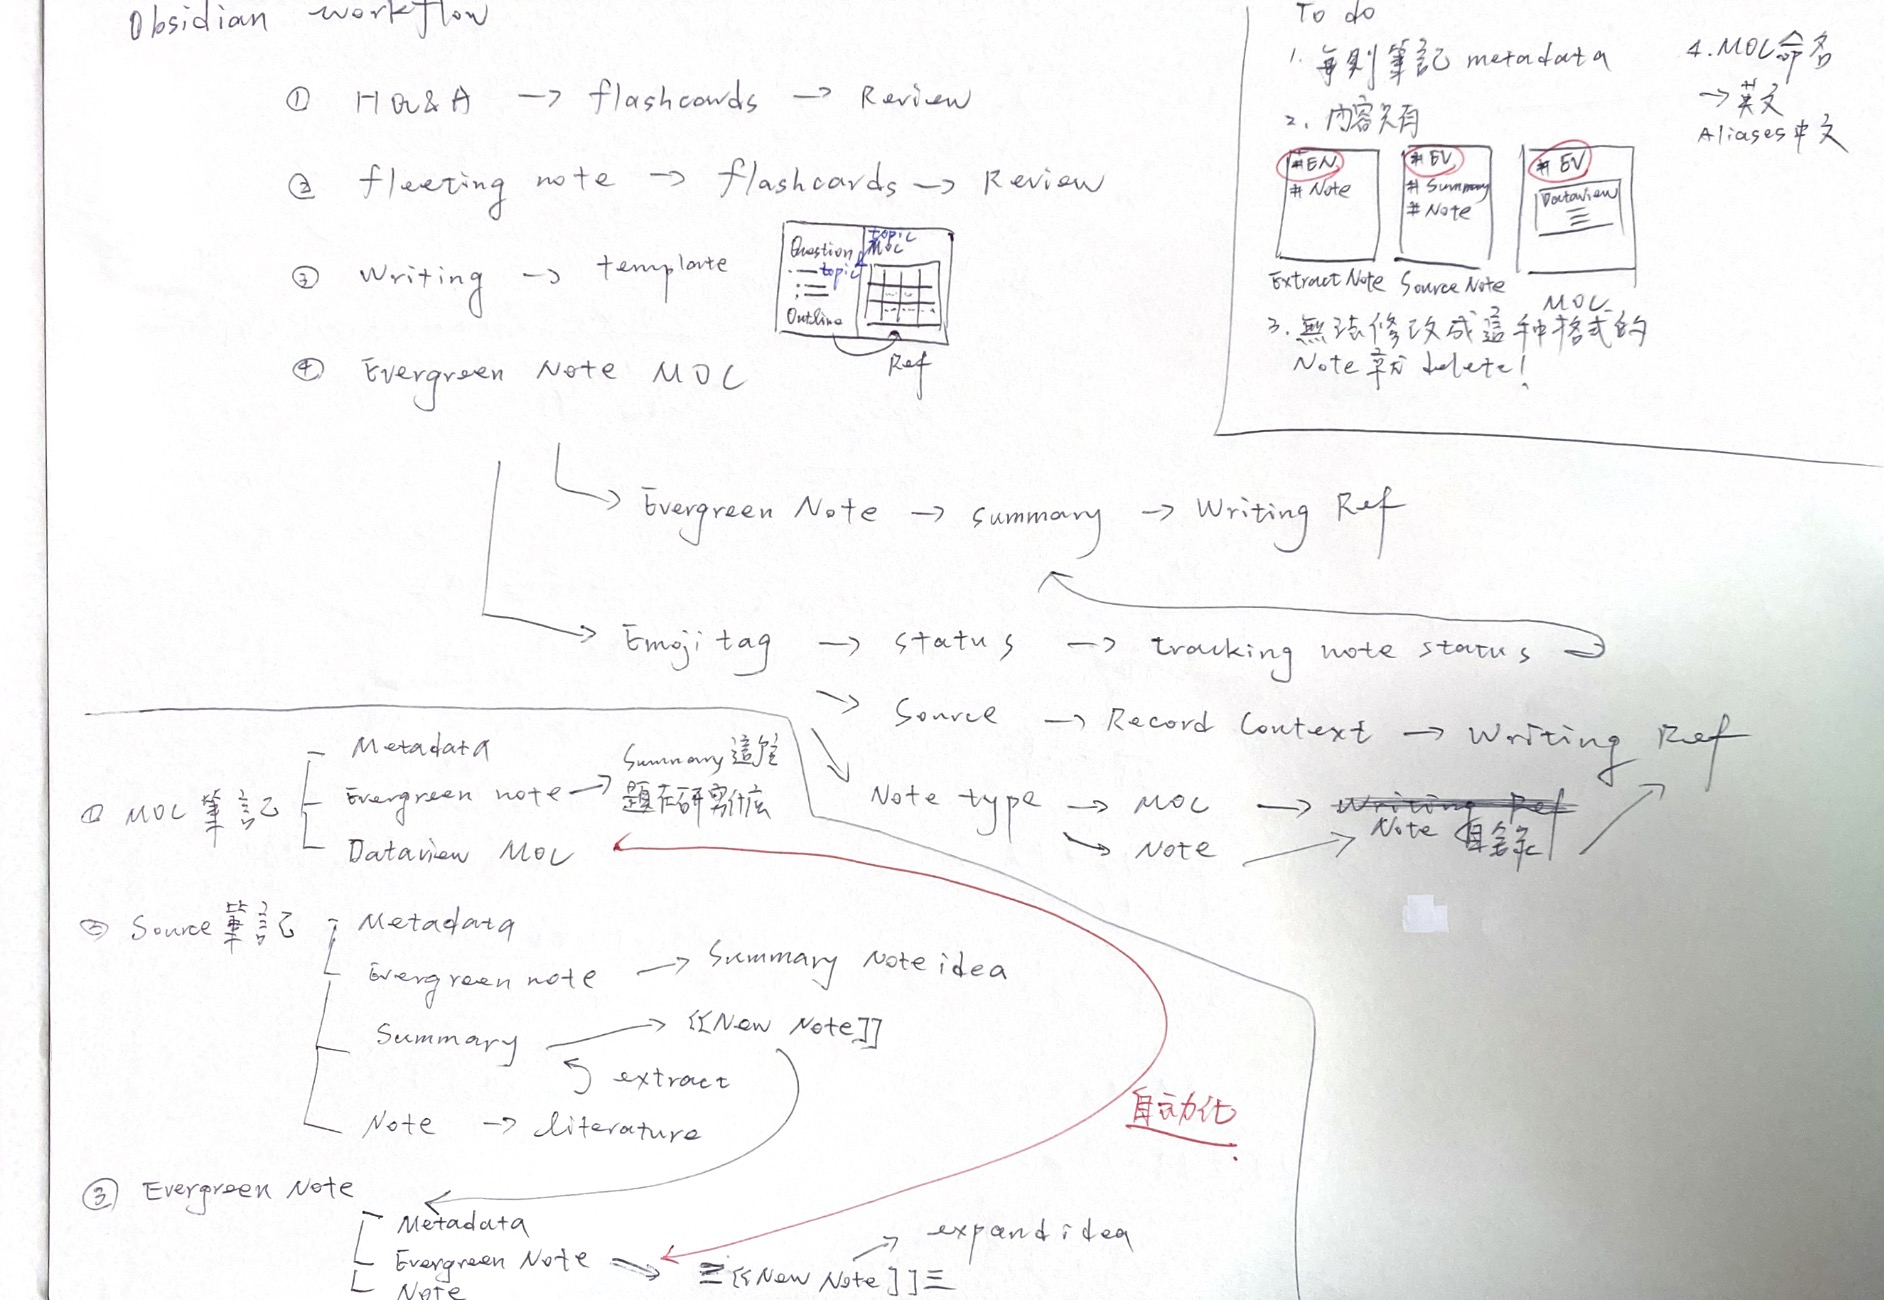 Obsidian workflow
① HQ&A → flashcards → Review
② fleeting note → flashcards → Review
③ Writing → template
Question
topic
Outline
topic
MOC
Ref
④ Evergreen Note MOC
→ Evergreen Note → summary → Writing Ref
→ Emoji tag → status → tracking note status
→ Source → Record Context → Writing Ref
Note type → MOC → Writing Ref
→ Note → Note 目錄
To do
1. 每則筆記 metadata
2. 內容只有
#EN
# Note
Extract Note
# EV
# Summary
# Note
Source Note
# EV
Dataview
MOC
3. 無法修改成這種格式的
Note 就 delete!
4. MOC命名
→ 英文
Aliases中文
① MOC 筆記
Metadata
Evergreen note → Summary這
題在研究什麼
Dataview MOC
② Source筆記
Metadata
Evergreen note → Summary Note idea
Summary → [[New Note]]
extract
Note → literature
自動化
③ Evergreen Note
Metadata
Evergreen Note → [[New Note]]
expand idea
Note